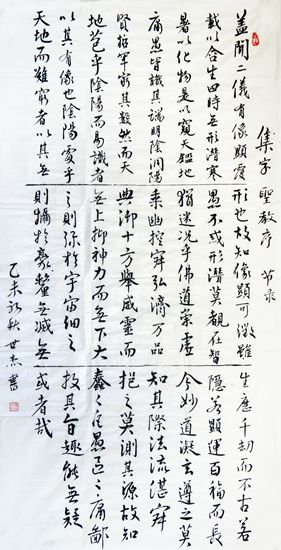 集字聖教序 節录
蓋聞二儀有像顯覆
載以含生四時無形潛寒
暑以化物是以窺天鑑地
庸愚皆識其端明陰洞陽
賢哲罕窮其數然而天
地苞乎陰陽而易識者
以其有像也陰陽處乎
天地而難窮者以其無
形也故知像顯可徵雖
愚不惑形潛莫覩在智
猶迷況乎佛道崇虛
乘幽控寂弘濟万品
典御十方舉威靈而
無上抑神力而無下大
之則彌於宇宙細之
則攝於毫釐無滅無
生歷千劫而不古若
隱若顯運百福而長
今妙道凝玄遵之莫
知其際法流湛寂
挹之莫測其源故知
蠢蠢凡愚區區庸鄙
投其旨趣能無疑
或者哉
乙未初秋世杰書